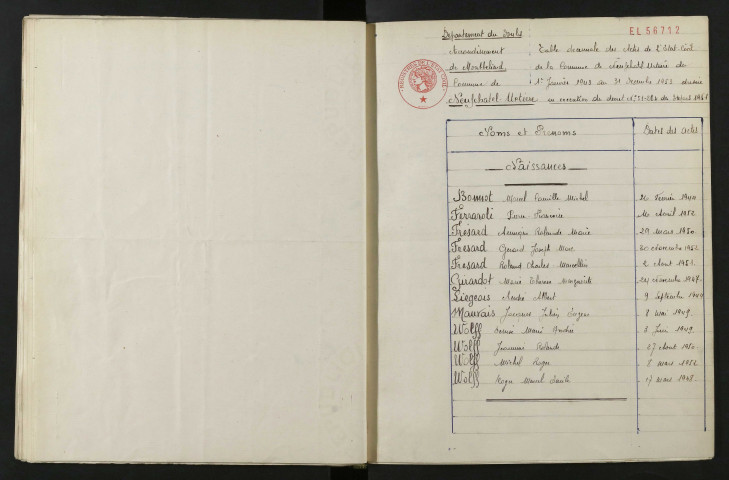 EL 56712
Département du Doubs
Arrondissement
de Montbéliard
Commune de
Neufchatel Urtière
Table décennale des Actes de l'Etat Civil
de la Commune de Neufchatel Urtière du
1er Janvier 1943 au 31 Décembre 1952 dressée
en exécution du décret
Noms et Prénoms Dates des actes
Naissances
Bonnot Marcel Camille Michel Février
Ferraroli Pierre avril 1952
Fresard Rolande Marie 29 mars 1950
Fresard Gérard Joseph Marc 20 décembre 1952
Fresard Roland Charles Marcellin 2 Aout 1951
Girardot Marie Thérèse Marguerite 1947
Liegeois André Albert 9 Septembre
Mauvais Jacques 8 mai 1949
Wolff Marie Juin 1949
Wolff Rolande 27 Aout
Wolff Michel Roger 8 mars 1952
Wolff Roger Marcel 17 mars 1948